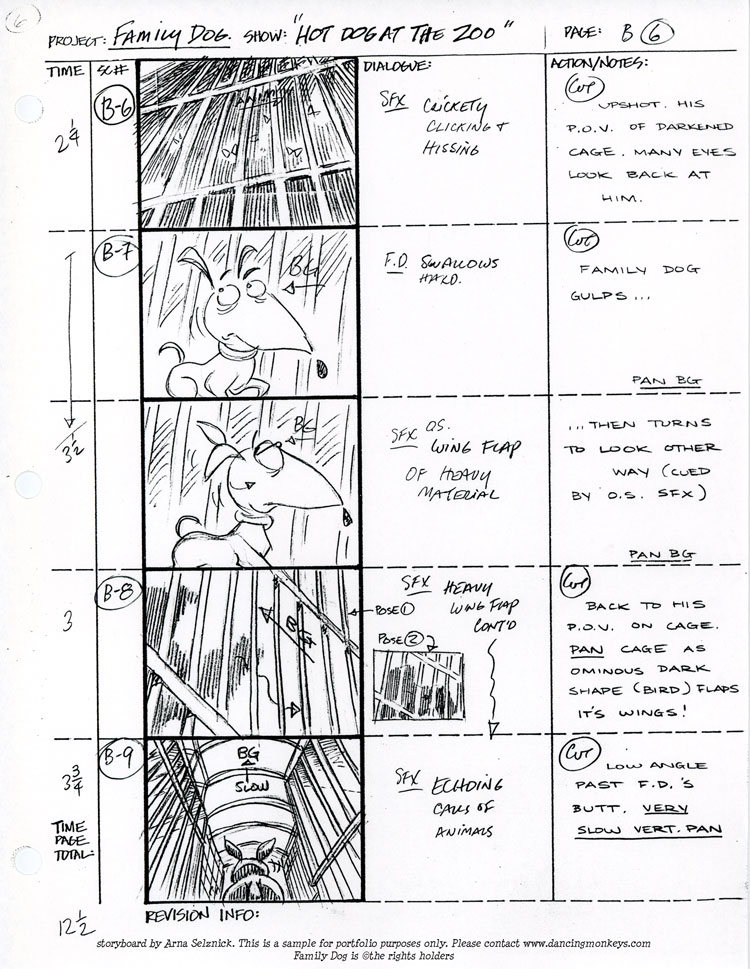 6
PROJECT: FAMILY DOG. SHOW: "HOT DOG AT THE ZOO" PAGE: B 6
TIME SC# DIALOGUE: ACTION/NOTES:
2 1/4
B-6
SFX CLICKETY
CLICKING +
HISSING
CUT
UPSHOT. HIS
P.O.V. OF DARKENED
CAGE. MANY EYES
LOOK BACK AT
HIM.
B-7
BG
F.D. SWALLOWS
HARD.
CUT
FAMILY DOG
GULPS...
PAN BG
3 1/2
BG
SFX OS.
WING FLAP
OF HEAVY
MATERIAL
...THEN TURNS
TO LOOK OTHER
WAY (CUED
BY O.S. SFX)
PAN BG
3
B-8
BG
SFX HEAVY
WING FLAP
CONT'D
POSE 1
POSE 2
CUT
BACK TO HIS
P.O.V. ON CAGE.
PAN CAGE AS
OMINOUS DARK
SHAPE (BIRD) FLAPS
IT'S WINGS!
3 3/4
B-9
BG
SLOW
SFX ECHOING
CALLS OF
ANIMALS
CUT
LOW ANGLE
PAST F.D.'S
BUTT. VERY
SLOW VERT. PAN
TIME
PAGE
TOTAL:
12 1/2
REVISION INFO:
storyboard by Arna Selznick. This is a sample for portfolio purposes only. Please contact www.dancingmonkeys.com
Family Dog is ©the rights holders